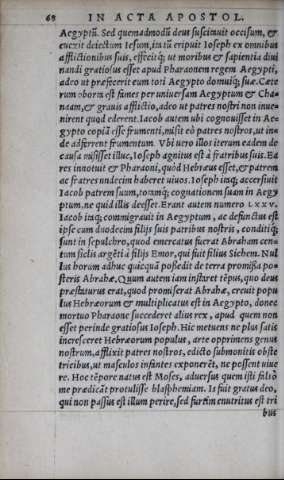 68 IN ACTA APOSTOL.
Aegyptũ. Sed quemadmodũ deus suscitauit occisum, &
euexit deiectum Iesum, ita tũ eripuit Ioseph ex omnibus
afflictionibus suis, effecitq́; ut moribus & sapientia diui
nandi gratiosus esset apud Pharaonem regem Aegypti,
adeo ut præfecerit eum toti Aegypto domuiq́; suæ. Cæte
rum oborta est fames per uniuersam Aegyptum & Cha
naam, & grauis afflictio, adeo ut patres nostri non inue-
nirent quod ederent. Iacob autem ubi cognouisset in Ae-
gypto copiã esse frumenti, misit eò patres nostros, ut in-
de adferrent frumentum. Vbi uero illos iterum eadem de
causa misisset illuc, Ioseph agnitus est à fratribus suis. Ea
res innotuit & Pharaoni, quòd Hebræus esset, & patrem
ac fratres undecim haberet uiuos. Ioseph itaq; accersiuit
Iacob patrem suum, totamq; cognationem suam in Aegy
ptum, ne quid illis deesset. Erant autem numero LXXV.
Iacob itaq; commigrauit in Aegyptum, ac defunctus est
ipse cum duodecim filijs suis patribus nostris, conditiq́;
sunt in sepulchro, quod emercatus fuerat Abraham cen-
tum siclis argẽti à filijs Emor, qui fuit filius Sichem. Nul
lus horum adhuc quicquã possedit de terra promissa po-
steris Abrahæ. Quum autem iam instaret tẽpus, quo deus
præstiturus erat, quod promiserat Abrahæ, creuit popu
lus Hebræorum & multiplicatus est in Aegypto, donec
mortuo Pharaone succederet alius rex, apud quem non
esset perinde gratiosus Ioseph. Hic metuens ne plus satis
incresceret Hebræorum populus, arte opprimens genus
nostrum, afflixit patres nostros, edicto submonitis obste
tricibus, ut masculos infantes exponerẽt, ne possent uiue
re. Hoc tẽpore natus est Moses, aduersus quem isti falsò
me prædicãt protulisse blasphemiam. Is fuit gratus deo,
qui non passus est illum perire, sed furtim enutritus est tri
bus